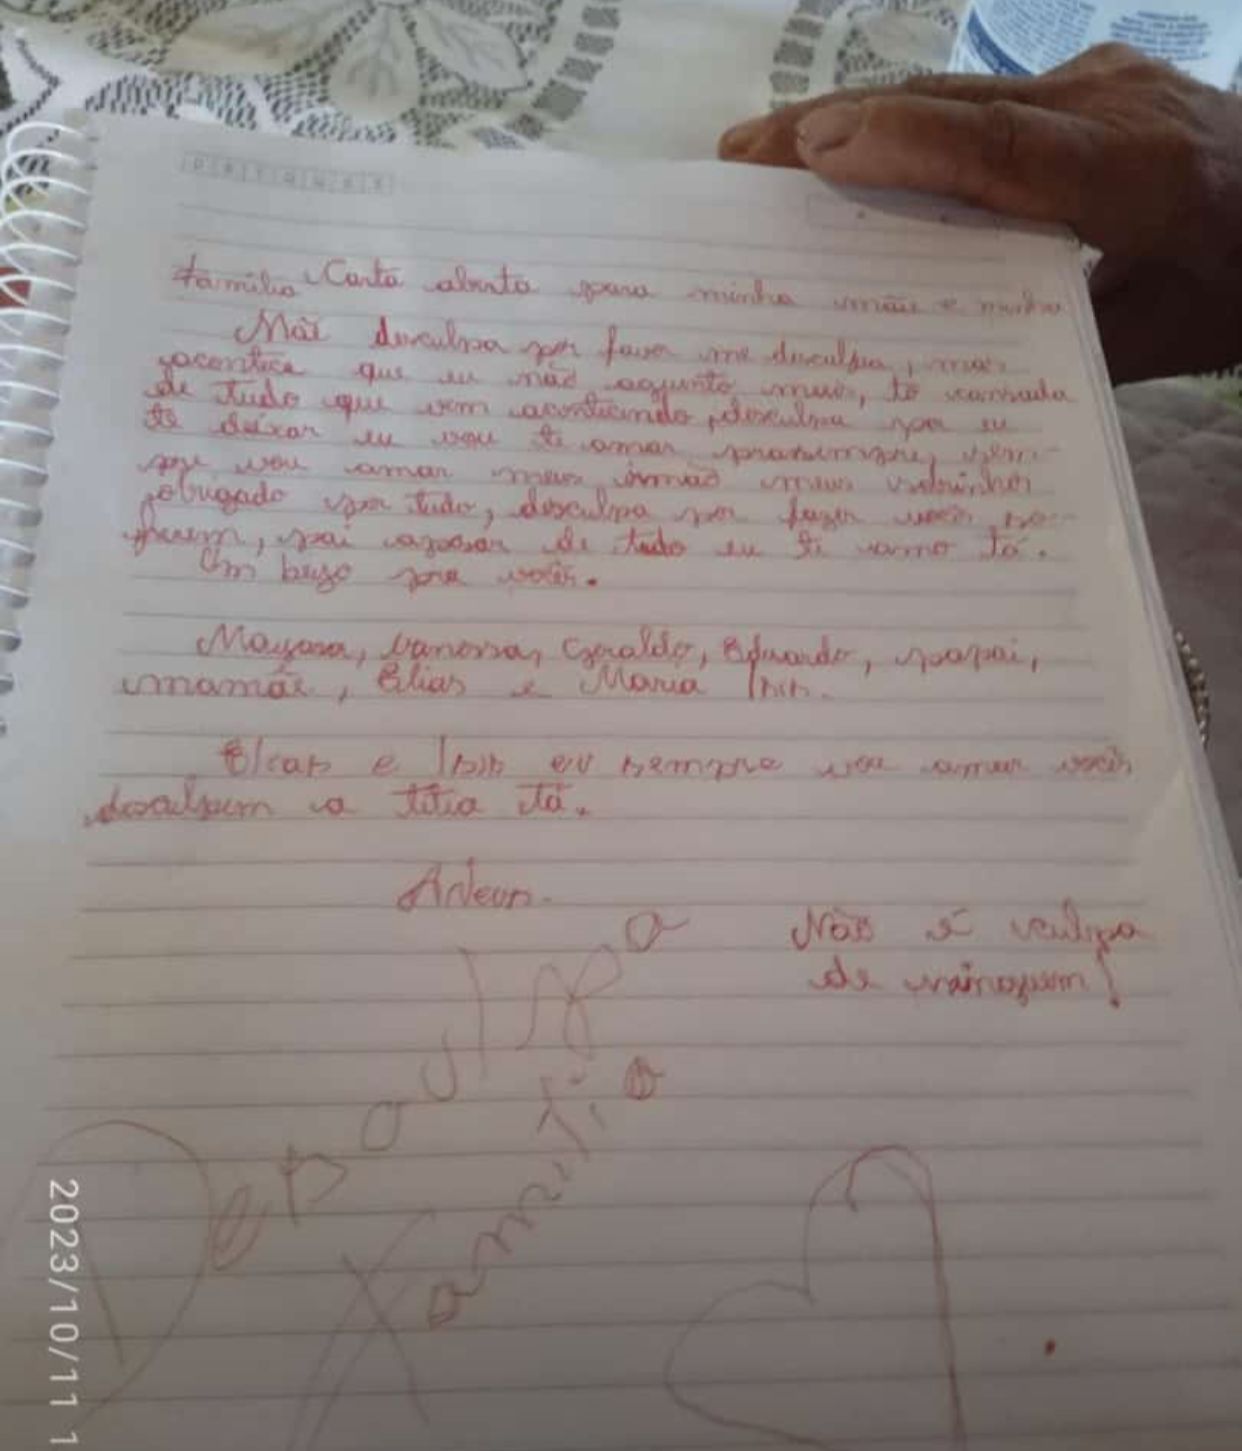 família Carta abnta para minha mãe e minha
Mãe desculpa por favor me desculpa, mais
acontece que eu não aguento mais, tô cansada
de tudo que vem acontecendo, desculpa por eu
te deixar eu vou te amar prasempre, sem-
pre vou amar meus irmão meus sobrinhos
obrigado por tudo, desculpa por fazer vocês so-
frerem, pai apesar de tudo eu te amo tá.
Um beijo pra vocês.
Mayara, Vanessa, Geraldo, Eduardo, papai,
mamãe, Elias e Maria Isis.
Elias e Isis eu sempre vou amar vocês
desculpem a titia tá.
Não é culpa
de
Desculpa
família
2023/10/11 1